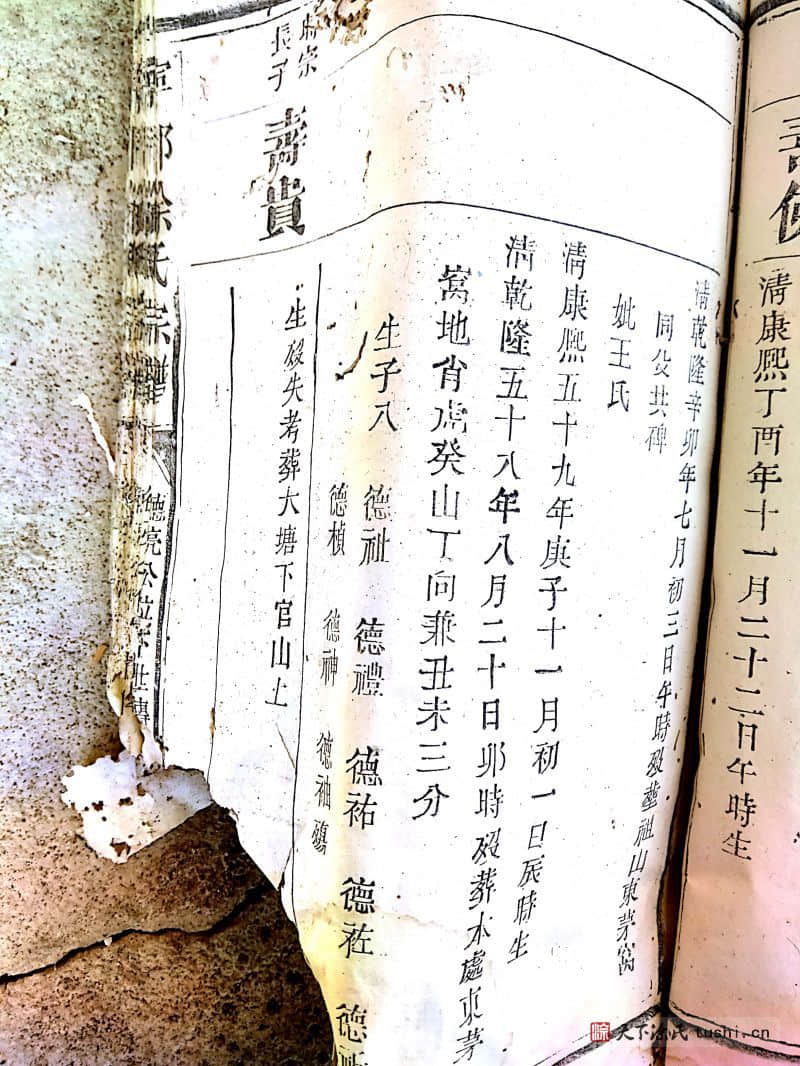 清康熙丁酉年十一月二十二日午時生
清乾隆辛卯年七月初三日午時殁葬祖山東茅窩
同殳共碑
妣王氏
清康熙五十九年庚子十一月初一日辰時生
清乾隆五十八年八月二十日卯時殁葬本處東茅
窩地肖虎癸山丁向兼丑未三分
生子八
德祉 德禮 德祐 德祍 德
德楨 德神 德袖殤
長子
壽貴
生殁失考葬大塘下官山上
氏宗譜
德亮公位下世傳
天下涂氏 tushi.cn